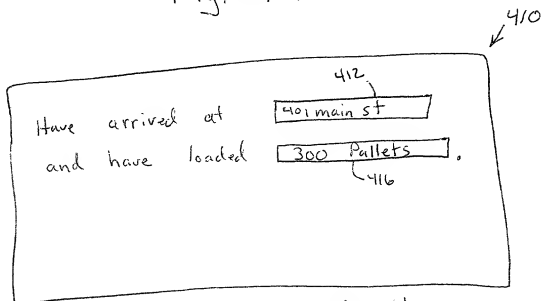 410
412
Have arrived at 401 main st
and have loaded 300 Pallets.
416